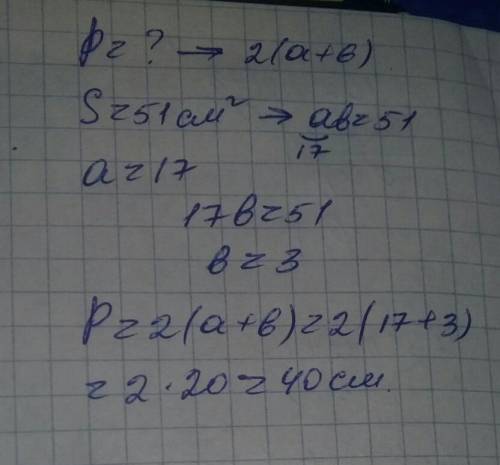 P = ? → 2(a+в)
S = 51 см² → aв = 51
17
a = 17
17в = 51
в = 3
P = 2(a+в) = 2(17+3)
= 2 · 20 = 40 см.